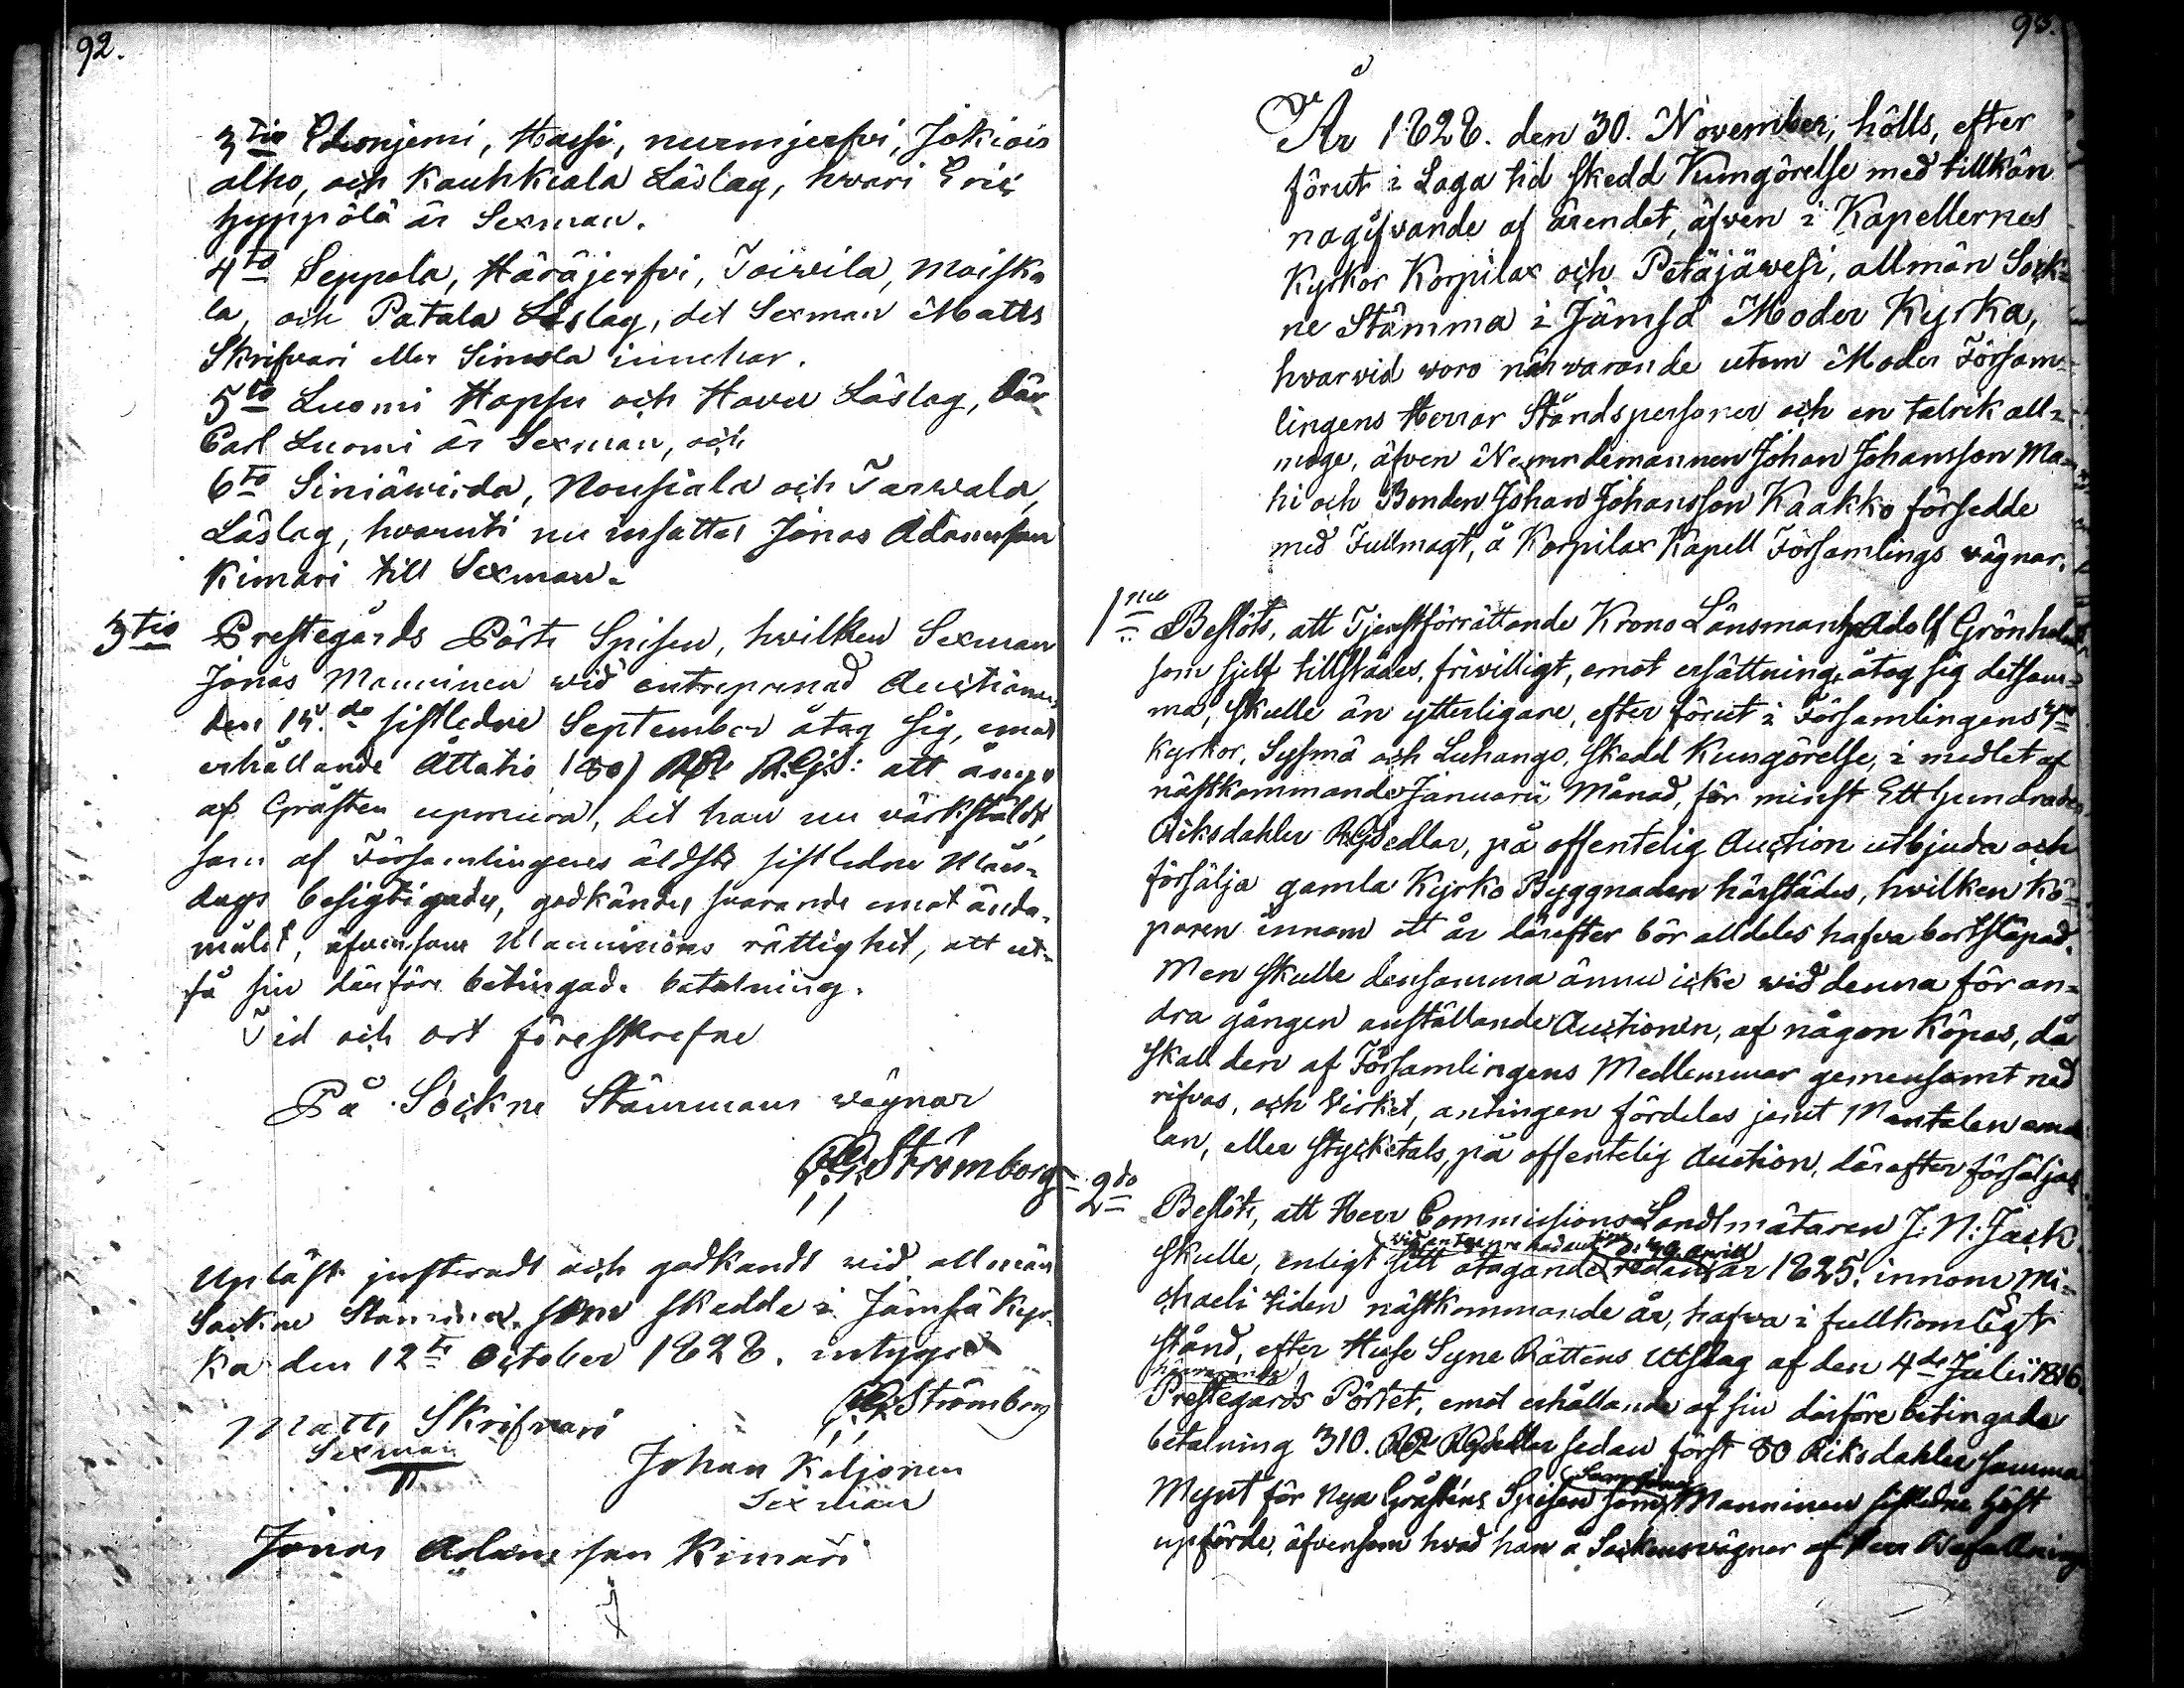 92.
3tio Edesnjemi, Hassi, nurmjerfvi, Jokiois
alho, och Kauhkiala Läslag, hwari Eric
Hyppölä är Sexman.
4to Seppola, Häräjerfvi, Toivila, Moiska
la, och Patala Läslag, det Sexman Matts
Skrifvari eller Simola innehar.
5to Luomi Hopsu och Haveri Läslag, där
Carl Luomi är Sexman, och
6to Siniäwirda, Nousiala och Tarwala,
Läslag, hvaruti nu insattes Jonas Adamsson
Kimari till Sexman.
3tio Prestegårds Pörts Spisen, hwilken Sexman
Jonas Manninen wid entreprenad Auctionen
den 15.de sistledne September åtog sig, emot
erhållande Åttatio (80) RD. R.Gs: att ånyo
af Gråsten upmura, det han nu värkstäldt,
som af Församlingenes äldste sistledne Mån-
dags besigtigades, godkändes svarande emot ända-
målet, äfvensom Manninens rättighet, att ut-
få sin därföre betingade betalning.
Tid och ort föreskrefne
På Sockne Stämmans wägnar
Strömborg
Upläst justeradt och godkändt wid allmän
Sockne Stämma, som skedde i Jämsä Kyr-
ka den 12te October 1828. intyga
Strömborg
Matts Skrifvari
Sexman
Johan Keljonen
Sexman
Jonas Adamsson Kimari
93.
År 1828. den 30. November, hölls, efter
förut i Laga tid skedd Kungörelse med tillkän
nagifvande af ärendet, äfven i Kapellernes
Kyrkor Korpilax och Petäjävesi, allmän Sock-
ne Stämma i Jämsä Moder Kyrka,
hvarvid woro närvarande utom Moder Försam-
lingens Herrar Ståndspersoner och en talrik all-
moge, äfven Nämndemannen Johan Johansson Ma-
hi och Bonden Johan Johansson Kaakko försedde
med Fullmagt, å Korpilax Kapell Församlings vägnar.
1mo Beslöts, att Tjenstförrättande Krono Länsman Adolf Grönholm
som sjelf tillstädes, friwilligt, emot ersättning, åtog sig detsam-
ma, skulle än ytterligare, efter förut i Församlingens
kyrkor, Sysmä och Luhango, skedd Kungörelse, i medlet af
nästkommande Januarii Månad, för minst Ett hundrade
Riksdahler RGSedlar, på offentelig Auction utbjuda och
försälja gamla Kyrko Byggnaden härstädes, hvilken kö-
paren innom ett år därefter bör alldeles hafva bortsläpad.
Men skulle densamma ännu icke wid denna för an-
dra gången anställande Auctionen, af någon köpas, då
skall den af Församlingens Medlemmar gemensamt ned
rifvas, och Virket, antingen fördelas jemt Mantalen emel
lan, eller stycketals, på offentelig Auction, därefter försäljas
2do Beslöts, att Herr Commissions Landtmätaren J: N: Jack
skulle, enligt sitt åtagande 1825. innom Mi-
chaeli tiden nästkommande år, hafva i fullkomligt
stånd, efter Huse Syne Rättens Utslag af den 4de Julii 1816
Prestegårds Pörtet, emot erhållande af sin därföre betingade
betalning 310. RD RGSedler sedan först 80 Riksdahler samma
Mynt för Nya Gråstens Spisen som Manninen sistledne Höst
upförde, äfvensom hvad han å Sockens vägnar af Herr Befallnings